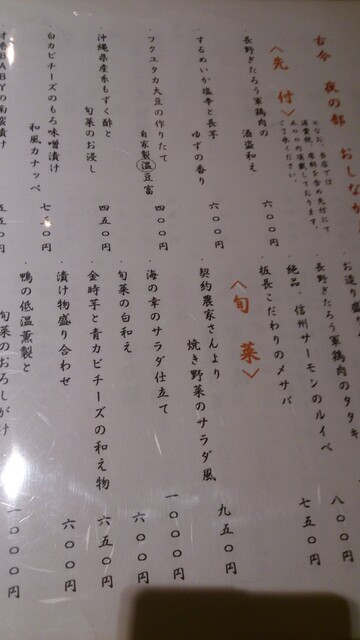 古今 夜の部 おしなが
〈先付〉
長野ぎたろう軍鶏肉の
酒盗和え
六〇〇円
するめいか塩辛と長芋
ゆずの香り
六〇〇円
フクユタカ大豆の作りたて
自家製温豆富
四〇〇円
沖縄県産糸もずく酢と
旬菜のお浸し
四五〇円
白カビチーズのもろ味噌漬け
和風カナッペ
七五〇円
BABYの南蛮漬け
五五〇円
お造り盛
長野ぎたろう軍鶏肉のタタキ
八〇〇円
絶品、信州サーモンのルイベ
七五〇円
板長こだわりのメサバ
〈旬菜〉
契約農家さんより
焼き野菜のサラダ風
九五〇円
海の幸のサラダ仕立て
一〇〇〇円
旬菜の白和え
六〇〇円
金時芋と青カビチーズの和え物
六五〇円
漬け物盛り合わせ
六〇〇円
鴨の低温薫製と
旬菜のおろしがけ
一〇〇〇円